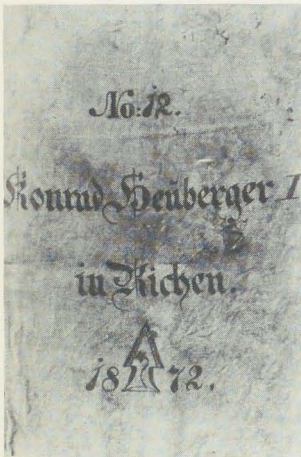 No: 12.
Konrad Heuberger I
in Richen.
18 72.